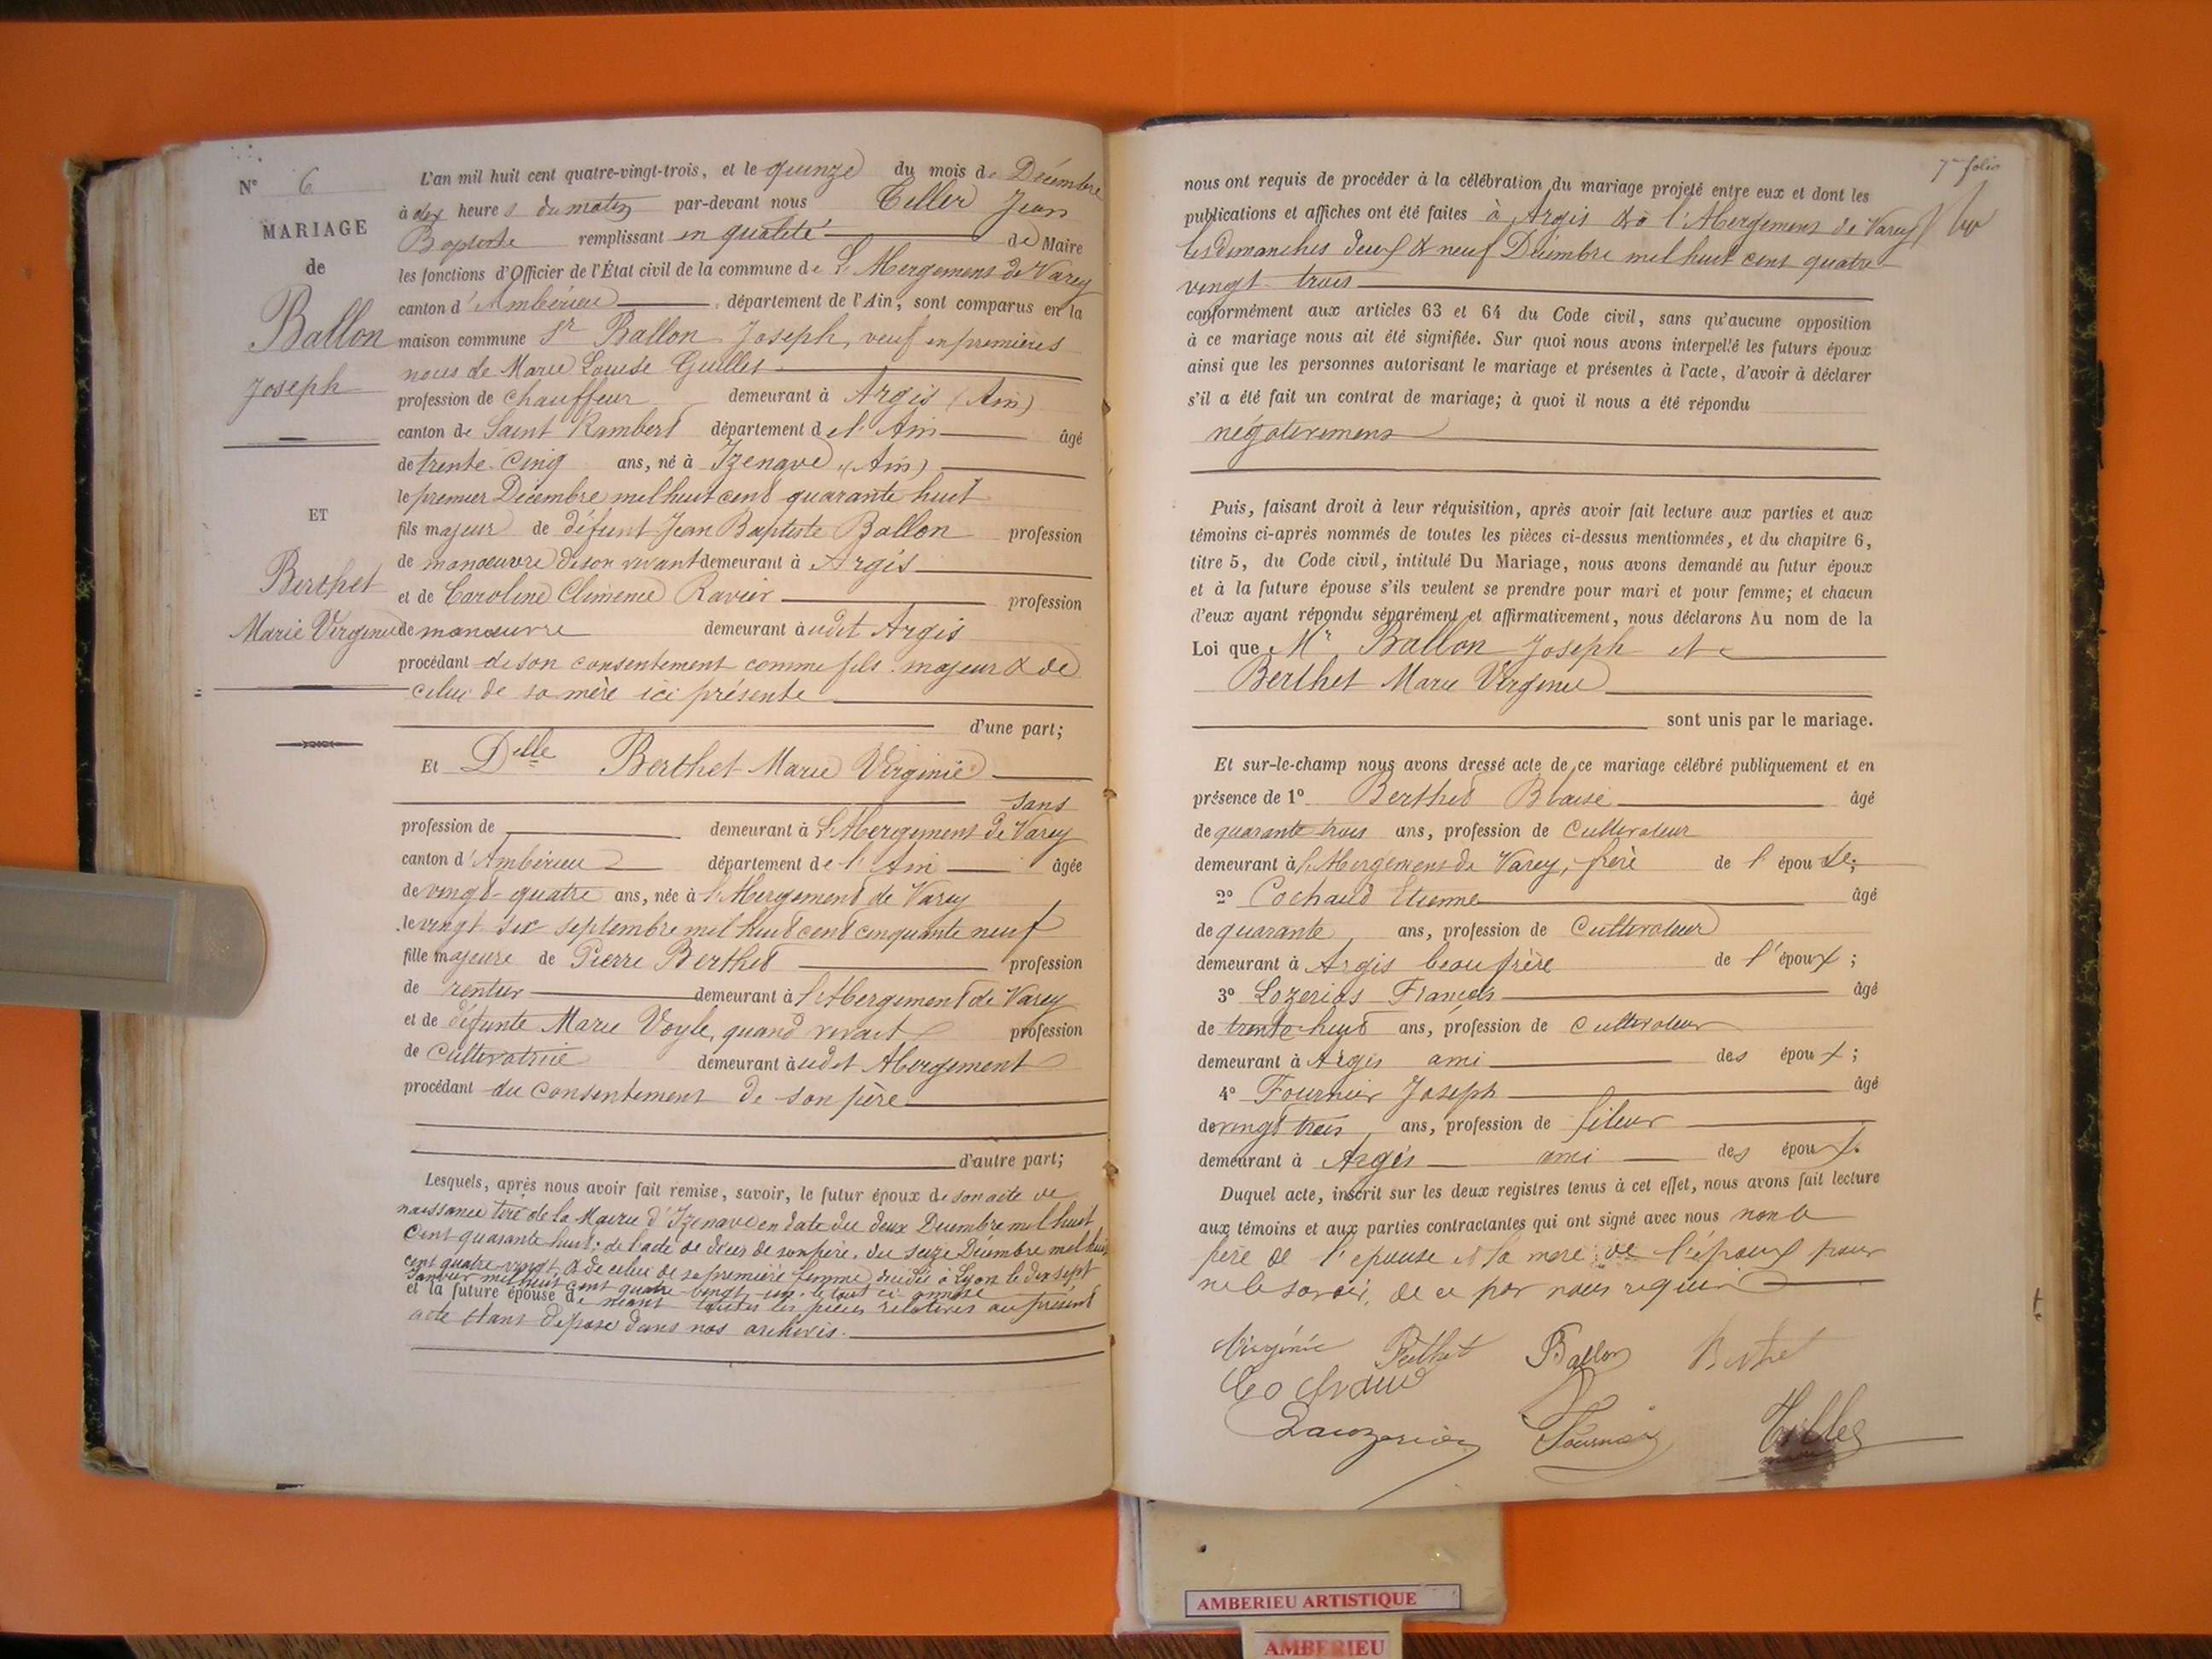 N° 6
MARIAGE
de
Ballon
Joseph
ET
Berthet
Marie Virginie
L'an mil huit cent quatre-vingt-trois, et le quinze du mois de Décembre
à dix heures du matin par-devant nous Tiller Jean
Baptiste remplissant en qualité de Maire
les fonctions d'Officier de l'État civil de la commune de L'Abergement de Varey
canton d'Ambérieu, département de l'Ain, sont comparus en la
maison commune Sr Ballon Joseph, veuf en premières
noces de Marie Louise Guillet
profession de chauffeur demeurant à Argis (Ain)
canton de Saint Rambert département de l'Ain âgé
de trente-cinq ans, né à Izenave (Ain)
le premier Décembre mil huit cent quarante huit
fils majeur de défunt Jean Baptiste Ballon profession
de manœuvre de son vivant demeurant à Argis
et de Caroline Climence Ravier profession
de manœuvre demeurant à udit Argis
procédant de son consentement comme fils majeur & de
celui de sa mère ici présente
d'une part;
Et Delle Berthet Marie Virginie
sans
profession de demeurant à L'Abergement de Varey
canton d'Ambérieu département de l'Ain âgée
de vingt-quatre ans, née à l'Abergement de Varey
le vingt six septembre mil huit cent cinquante neuf
fille majeure de Pierre Berthet profession
de rentier demeurant à l'Abergement de Varey
et de défunte Marie Voyle, quand vivait profession
de cultivatrice demeurant à udit Abergement
procédant du consentement de son père
d'autre part;
Lesquels, après nous avoir fait remise, savoir, le futur époux de son acte de
naissance tiré de la Mairie d'Izenave en date du deux Décembre mil huit
cent quarante huit; de l'acte de décès de son père, du seize Décembre mil huit
cent quatre-vingt, & de celui de sa première femme, décédée à Lyon le dix sept
Janvier mil huit cent quatre-vingt un, le tout ci-annexé
et la future épouse de néant toutes les pièces relatives au présent
acte étant déposé dans nos archives.
7me folio
nous ont requis de procéder à la célébration du mariage projeté entre eux et dont les
publications et affiches ont été faites à Argis & à l'Abergement de Varey
les dimanches deux & neuf Décembre mil huit cent quatre
vingt-trois
conformément aux articles 63 et 64 du Code civil, sans qu'aucune opposition
à ce mariage nous ait été signifiée. Sur quoi nous avons interpellé les futurs époux
ainsi que les personnes autorisant le mariage et présentes à l'acte, d'avoir à déclarer
s'il a été fait un contrat de mariage; à quoi il nous a été répondu
négativement
Puis, faisant droit à leur réquisition, après avoir fait lecture aux parties et aux
témoins ci-après nommés de toutes les pièces ci-dessus mentionnées, et du chapitre 6,
titre 5, du Code civil, intitulé Du Mariage, nous avons demandé au futur époux
et à la future épouse s'ils veulent se prendre pour mari et pour femme; et chacun
d'eux ayant répondu séparément et affirmativement, nous déclarons Au nom de la
Loi que Mr Ballon Joseph et
Berthet Marie Virginie
sont unis par le mariage.
Et sur-le-champ nous avons dressé acte de ce mariage célébré publiquement et en
présence de 1° Berthet Blaise âgé
de quarante trois ans, profession de cultivateur
demeurant à l'Abergement de Varey, frère de l'épouse;
2° Cochaud Etienne âgé
de quarante ans, profession de Cultivateur
demeurant à Argis beau frère de l'époux;
3° Lozerias François âgé
de trente huit ans, profession de cultivateur
demeurant à Argis ami des époux;
4° Fournier Joseph âgé
de vingt trois ans, profession de fileur
demeurant à Argis ami des époux.
Duquel acte, inscrit sur les deux registres tenus à cet effet, nous avons fait lecture
aux témoins et aux parties contractantes qui ont signé avec nous non le
père de l'épouse et la mère de l'époux pour
ne le savoir, de ce par nous requis
Virginie Berthet Ballon Berthet
Cochaud
Lauzerias Fournier Tiller
AMBERIEU ARTISTIQUE
AMBERIEU